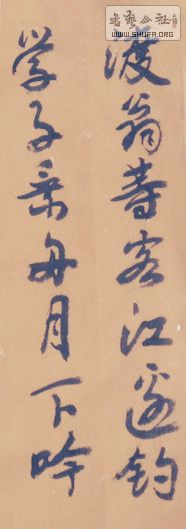 書法公社
WWW.SHUFA.ORG
渡翁苦客江邊釣
学子乘舟月下吟